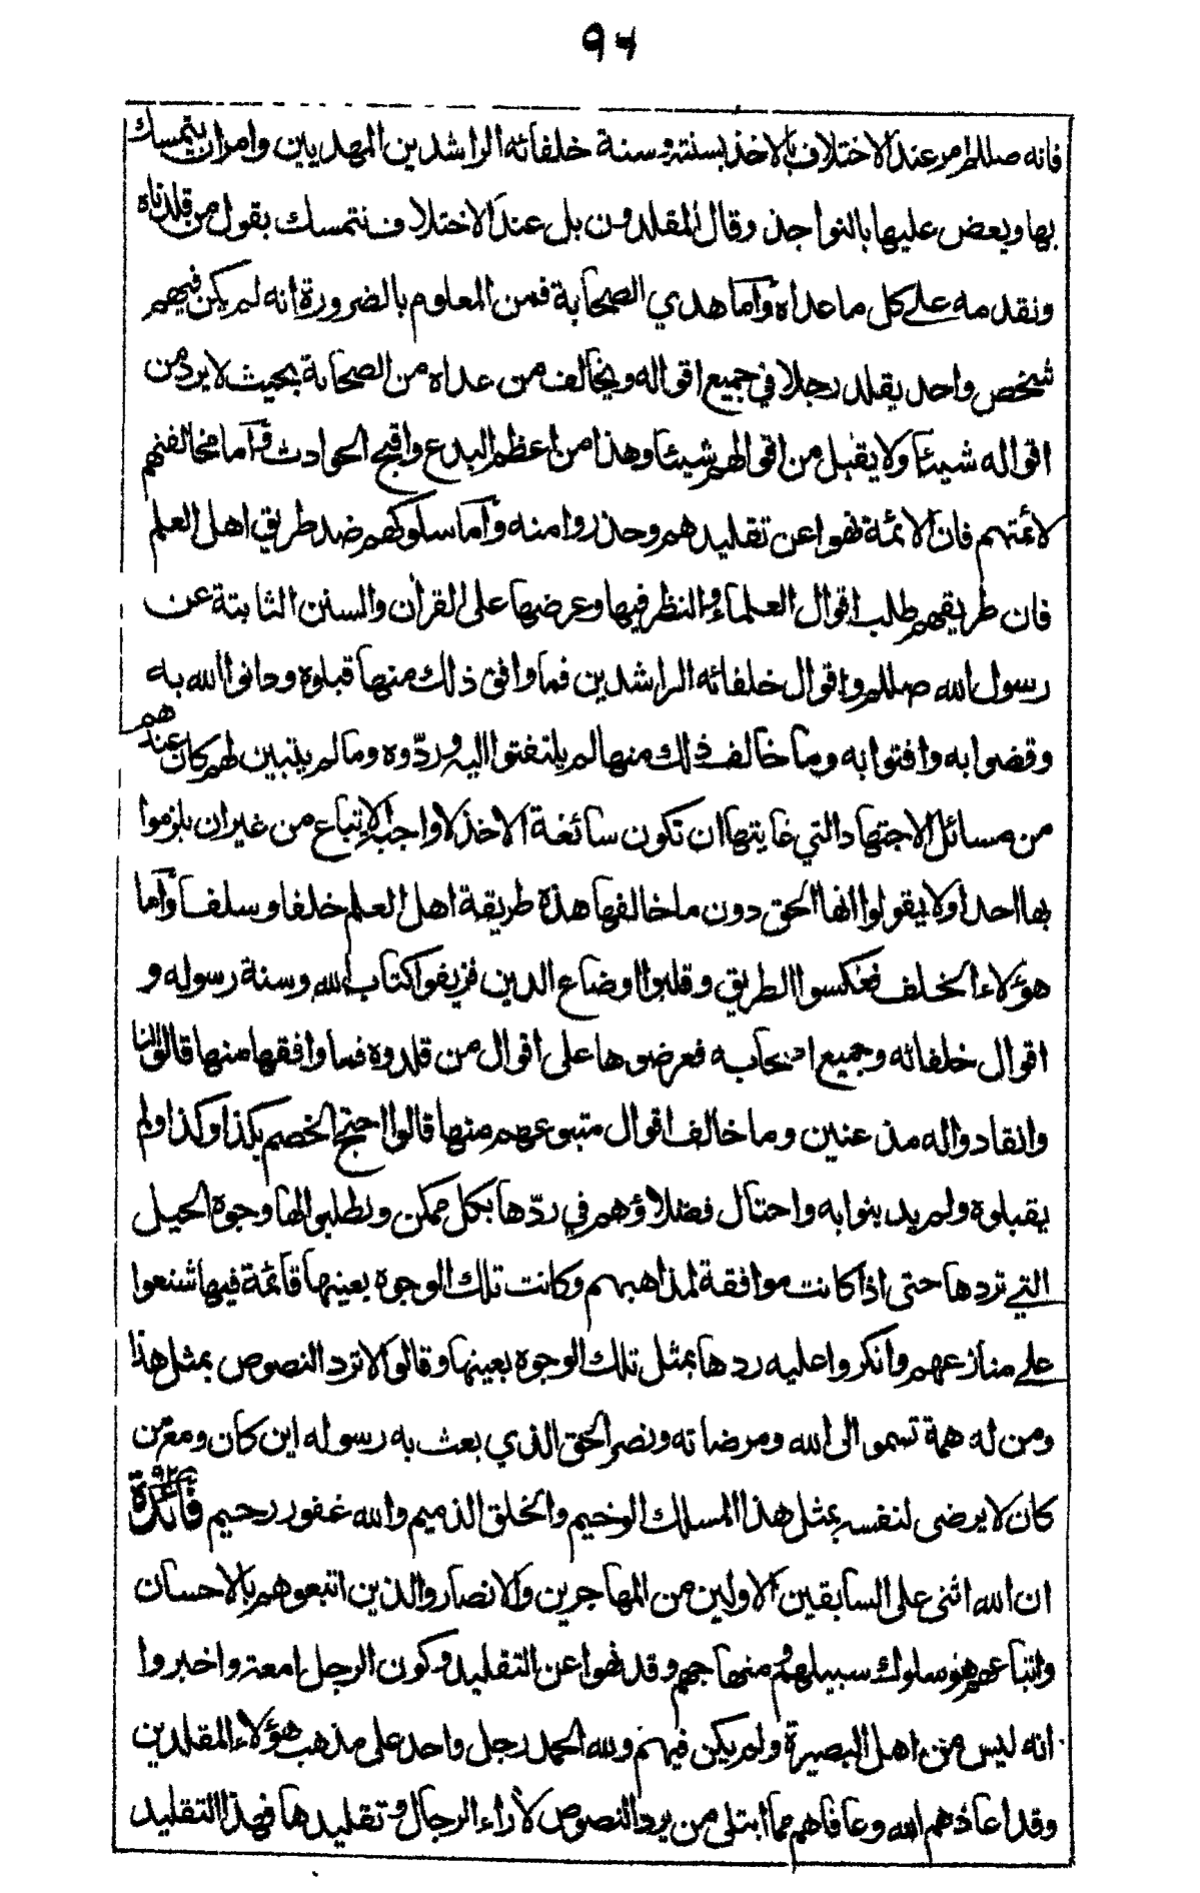 ٩٤
فانه صللم امر عند الاختلاف بالاخذ بسنته وسنة خلفائه الراشدين المهديين وامر ان يتمسك
بها ويعض عليها بالنواجذ وقال المقلدون بل عند الاختلاف نتمسك بقول من قلدناه
ونقدمه على كل ما عداه وآما هدي الصحابة فمن المعلوم بالضرورة انه لم يكن فيهم
شخص واحد يقلد رجلا في جميع اقواله ويخالف من عداه من الصحابة بحيث لا يرد من
اقواله شيئا ولا يقبل من اقوالهم شيئا وهذا من اعظم البدع واقبح الحوادث وآما مخالفتهم
لائمتهم فان الائمة نهوا عن تقليدهم وحذروا منه وآما سلوكهم ضد طريق اهل العلم
فان طريقهم طلب اقوال العلماء والنظر فيها وعرضها على القرأن والسنن الثابتة عن
رسول الله صللم واقوال خلفائه الراشدين فما وافق ذلك منها قبلوه ودانوا الله به
وقضوا به وافتوا به وما خالف ذلك منها لم يلتفتوا اليه وردّوه وما لم يتبين لهم كان عندهم
من مسائل الاجتهاد التي غايتها ان تكون سائغة الاخذ لا واجب الاتباع من غير ان يلزموا
بها احدا ولا يقولوا انها الحق دون ما خالفها هذه طريقة اهل العلم خلفا وسلفا وآما
هؤلاء الخلف فعكسوا الطريق وقلبوا اوضاع الدين فزيفوا كتاب الله وسنة رسوله و
اقوال خلفائه وجميع اصحابه فعرضوها على اقوال من قلدوه فما وافقها منها قالوا لنا
وانقادوا له مذعنين وما خالف اقوال متبوعهم منها قالوا احتج الخصم بكذا وكذا ولم
يقبلوه ولم يدينوا به واحتال فضلاؤهم في ردّها بكل ممكن وتطلبوا لها وجوه الحيل
التي تردها حتى اذا كانت موافقة لمذاهبهم وكانت تلك الوجوه بعينها قائمة فيها شنعوا
على منازعهم وانكروا عليه ردها بمثل تلك الوجوه بعينها وقالوا لا ترد النصوص بمثل هذا
ومن له همة تسمو الى الله ومرضاته ونصر الحق الذي بعث به رسوله اين كان ومع من
كان لا يرضى لنفسه بمثل هذا المسلك الوخيم والخلق الذميم والله غفور رحيم فآئدة
ان الله اثنى على السابقين الاولين من المهاجرين والانصار والذين اتبعوهم بالاحسان
واتباعهم هو سلوك سبيلهم ومنهاجهم وقد نهوا عن التقليد وكون الرجل امعة واخبروا
انه ليس من اهل البصيرة ولم يكن فيهم ولله الحمد رجل واحد على مذهب هؤلاء المقلدين
وقد اعاذهم الله وعافاهم مما ابتلى من يرد النصوص لأراء الرجال وتقليدها فهذا التقليد